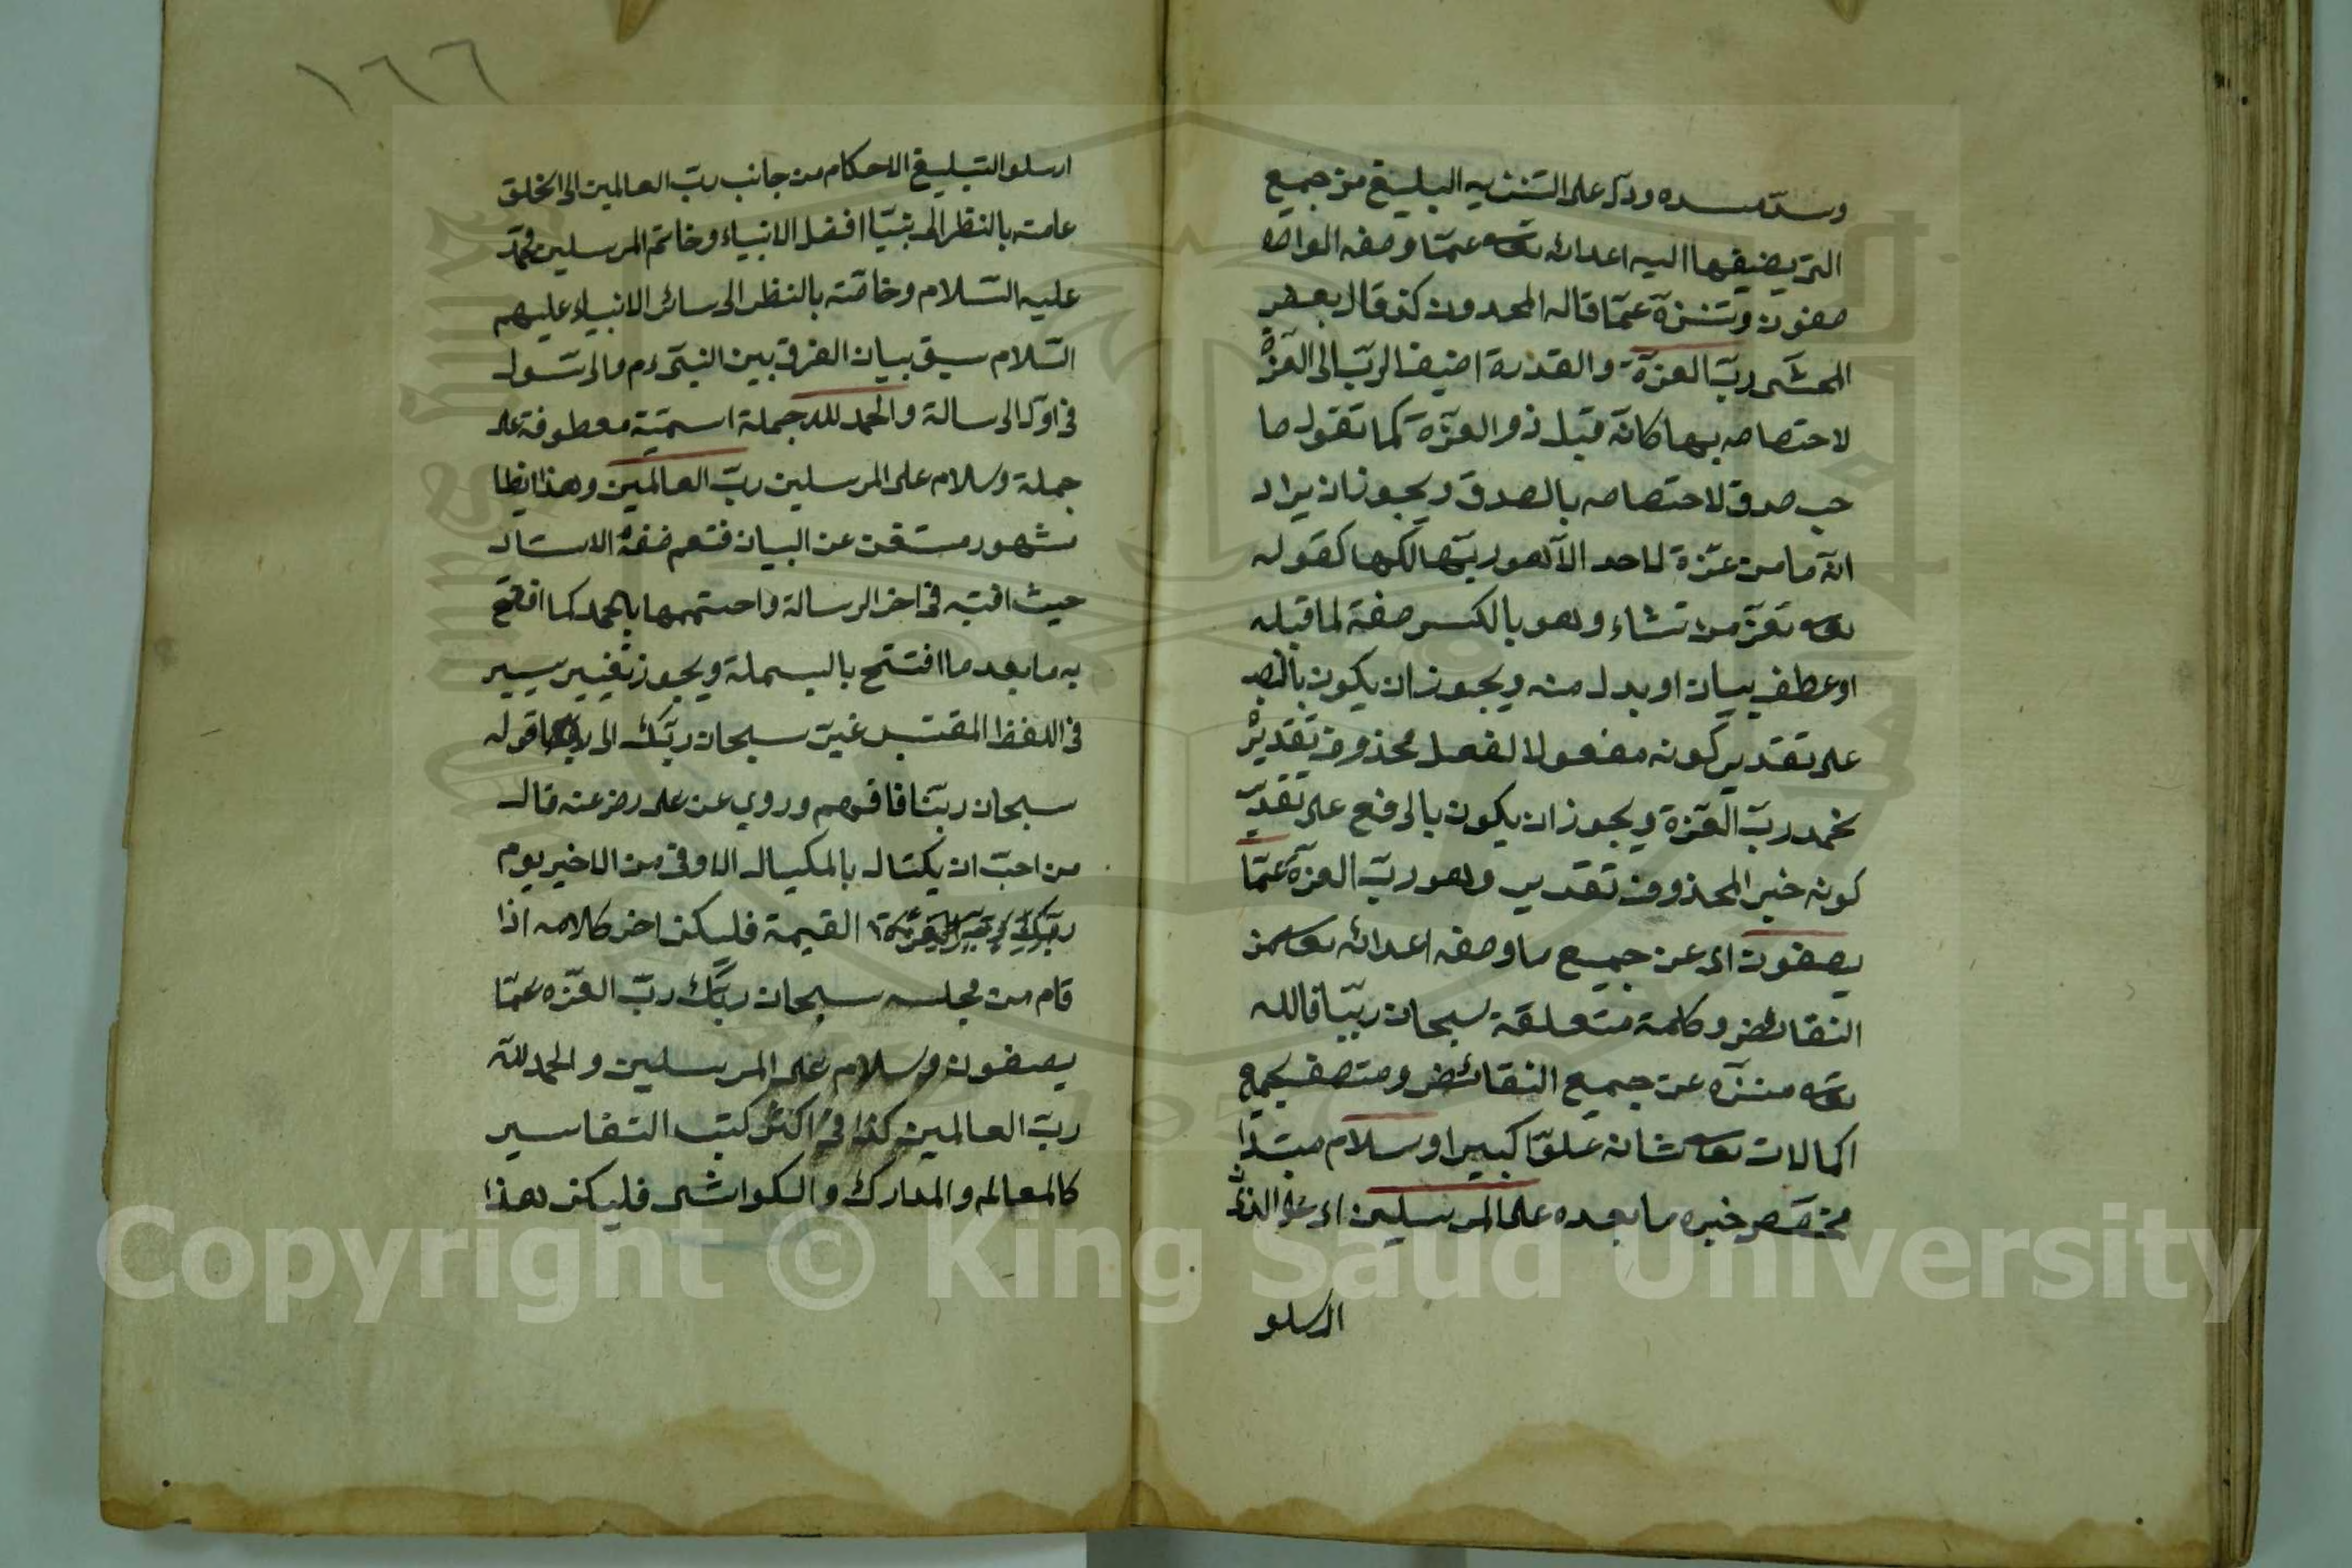 وسدّ مسده ودلّ على التنزيه البليغ من جميع
التي يضيفها اليه اعدائه تعالى عمّا وصفه الواصه
صفون وتنزّه عمّا قاله الملحدون كذ قال بعض
المحشى ربّ العزّة والقدرة اضيف الربّ الى العزّة
لاختصاصه بها كانّه قيل ذو العزّة كما تقول صا
حب صدق لاختصاصه بالصدق ويجوز ان يراد
انّه ما من عزّة لاحد الّا وهو ربّها مالكها كقوله
تعالى تعزّ من تشاء وهو بالكسر صفة لما قبله
او عطف بيان او بدل منه ويجوز ان يكون بالنصب
على تقدير كونه مفعولا لفعل محذوف تقديره
نحمد ربّ العزّة ويجوز ان يكون بالرفع على تقدير
كونه خبر المحذوف تقدير وهو ربّ العزّة عمّا
يصفون اى عن جميع ما وصفه اعدائه تعالى من
النقائض وكلمة متعلقة سبحان ربّنا فالله
تعالى منزّه عن جميع النقائض ومتصف بجميع
الكمالات تعالى شانه علوّا كبيرا وسلام مبتدا
مخصّص خبره ما بعده على المرسلين اى على الذين
ارسلو
١٦٦
ارسلوا لتبليغ الاحكام من جانب ربّ العالمين الى الخلق
عامته بالنظر الى نبيّنا افضل الانبياء وخاتم المرسلين محمّد
عليه السّلام وخاصّته بالنظر الى سائر الانبياء عليهم
السّلام سبق بيان الفرق بين النبىّ والرّسول
فى اوّل الرسالة والحمد لله جملة اسميّة معطوفة على
جملة وسلام على المرسلين ربّ العالمين وهذا ايظا
مشهور مستغن عن البيان فنعم
حيث اتى به فى اخر الرسالة واختتمها بالحمد كما افتتح
به ما بعد ما افتتح بالبسملة ويجوز تغيير يسير
فى اللفظ المقتبس غيّر سبحان ربّك الى قوله
سبحان ربّنا فافهم وروى عن على رضى عنه قال
من احبّ ان يكتال بالمكيال الاوفى من الاخير يوم
القيمة فليكن اخر كلامه اذا
قام من مجلسه سبحان ربّك ربّ العزّه عمّا
يصفون وسلام على المرسلين والحمد للّه
ربّ العالمين كذا فى اكثر كتب التفاسير
كالمعالم والمدارك والكواشى فليكن هذا
Copyright © King Saud University